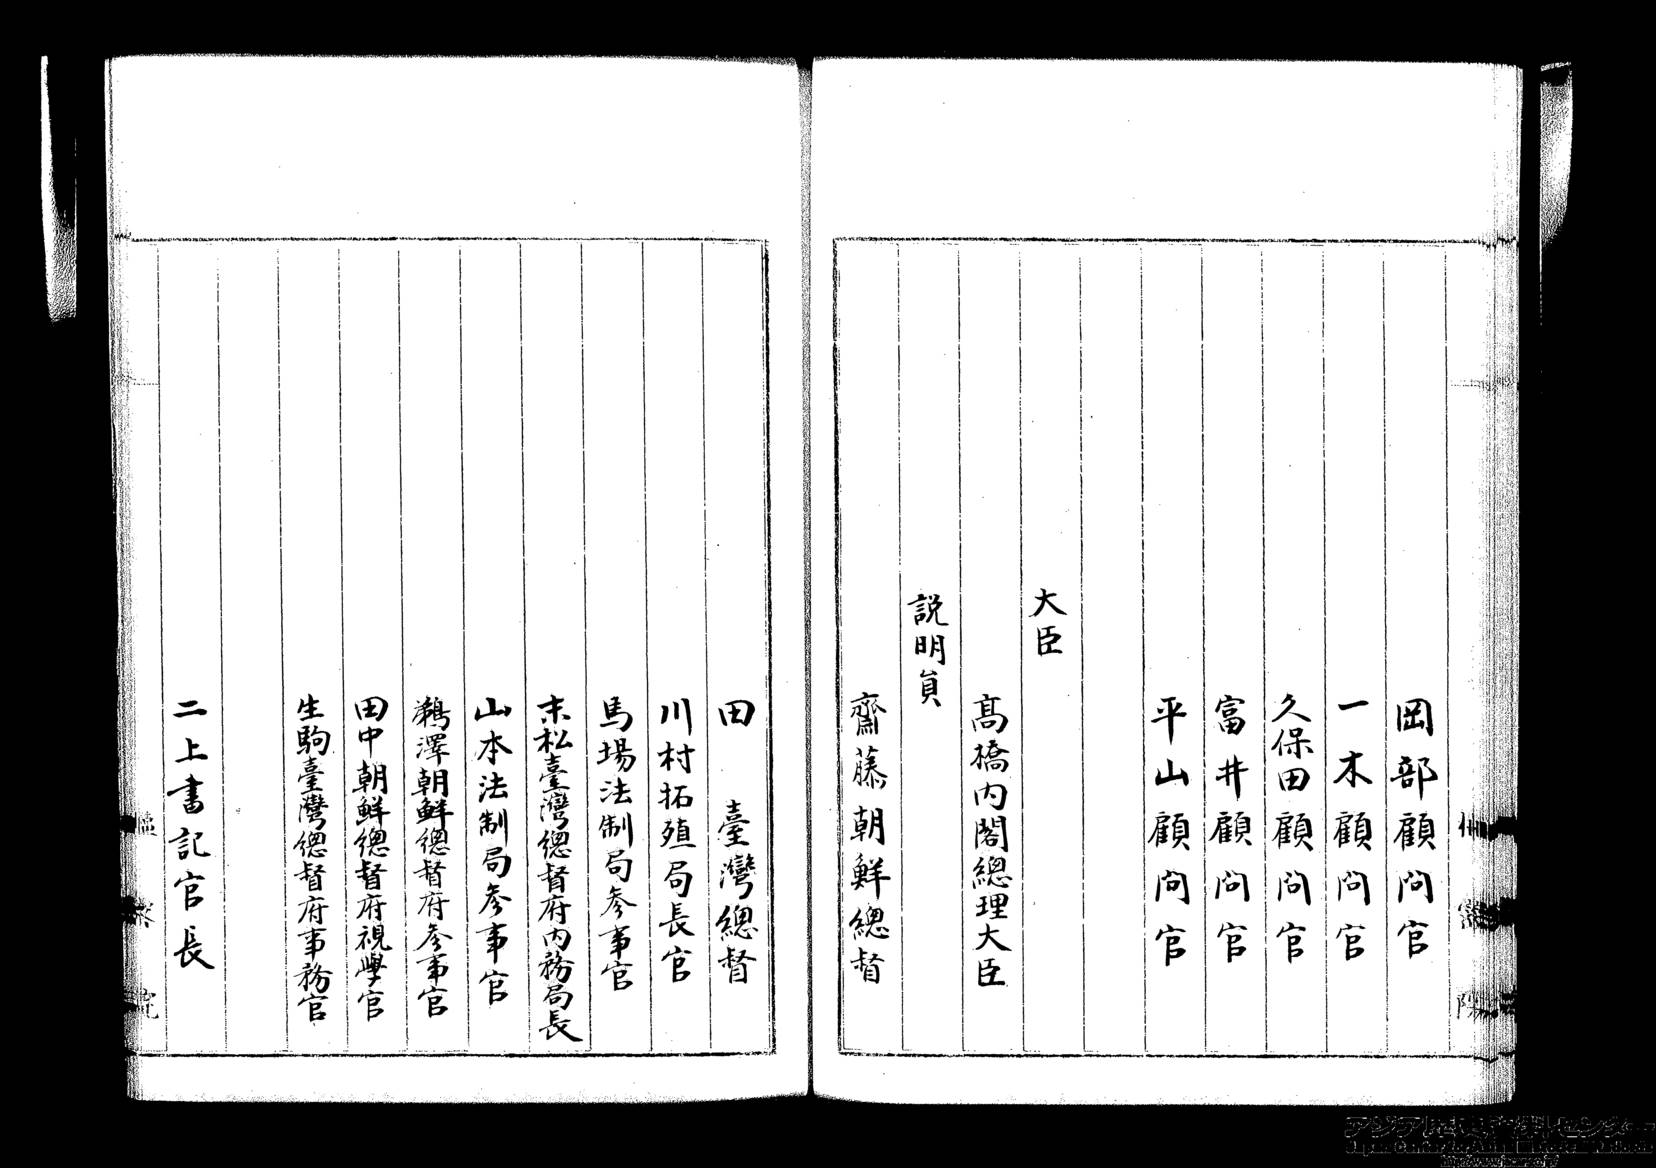 岡部顧問官
一木顧問官
久保田顧問官
富井顧問官
平山顧問官
大臣
髙橋内閣總理大臣
説明員
齋藤朝鮮總督
田臺灣總督
川村拓殖局長官
馬場法制局参事官
末松臺灣總督府内務局長
山本法制局参事官
鵜澤朝鮮總督府参事官
田中朝鮮總督府視學官
生駒臺灣總督府事務官
二上書記官長
アジア歴史資料センター
Japan Center for Asian Historical Records
http://www.jacar.go.jp/